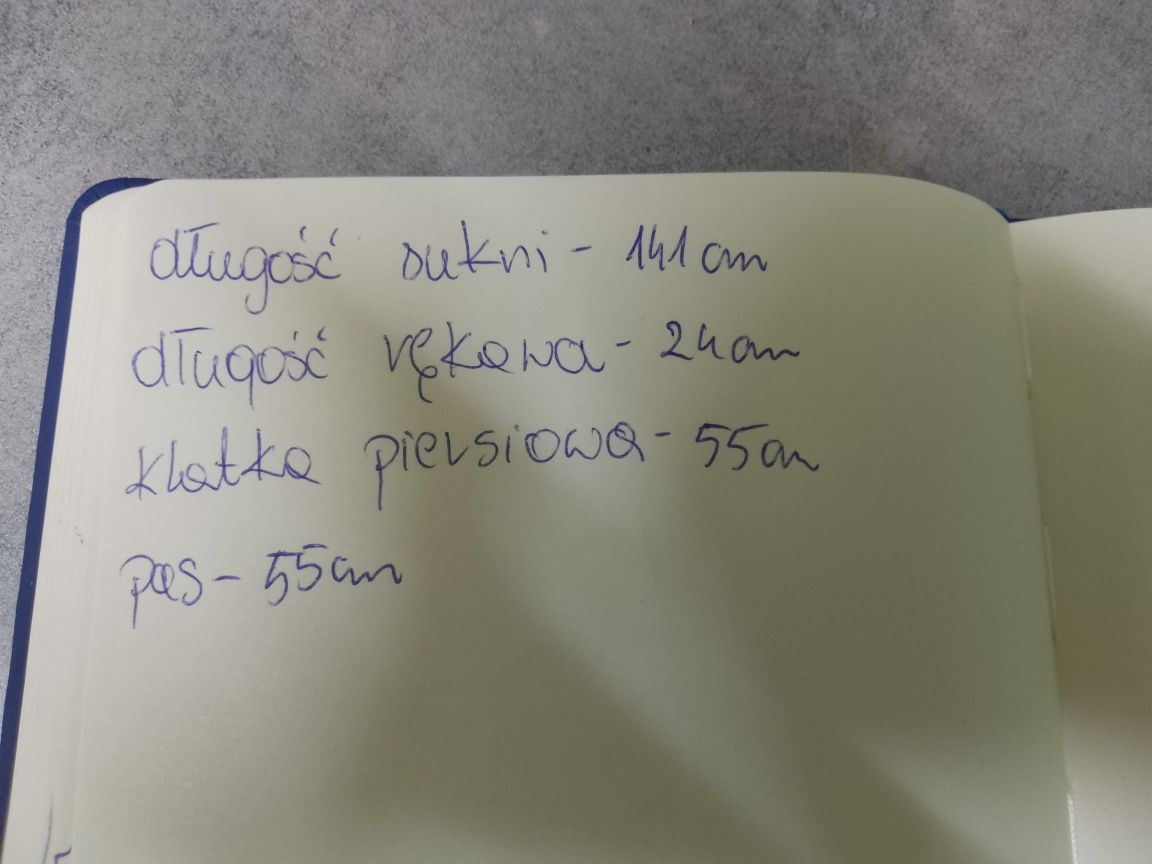 długość sukni - 141 cm
długość rękawa - 24 cm
klatka piersiowa - 55 cm
pas - 55 cm